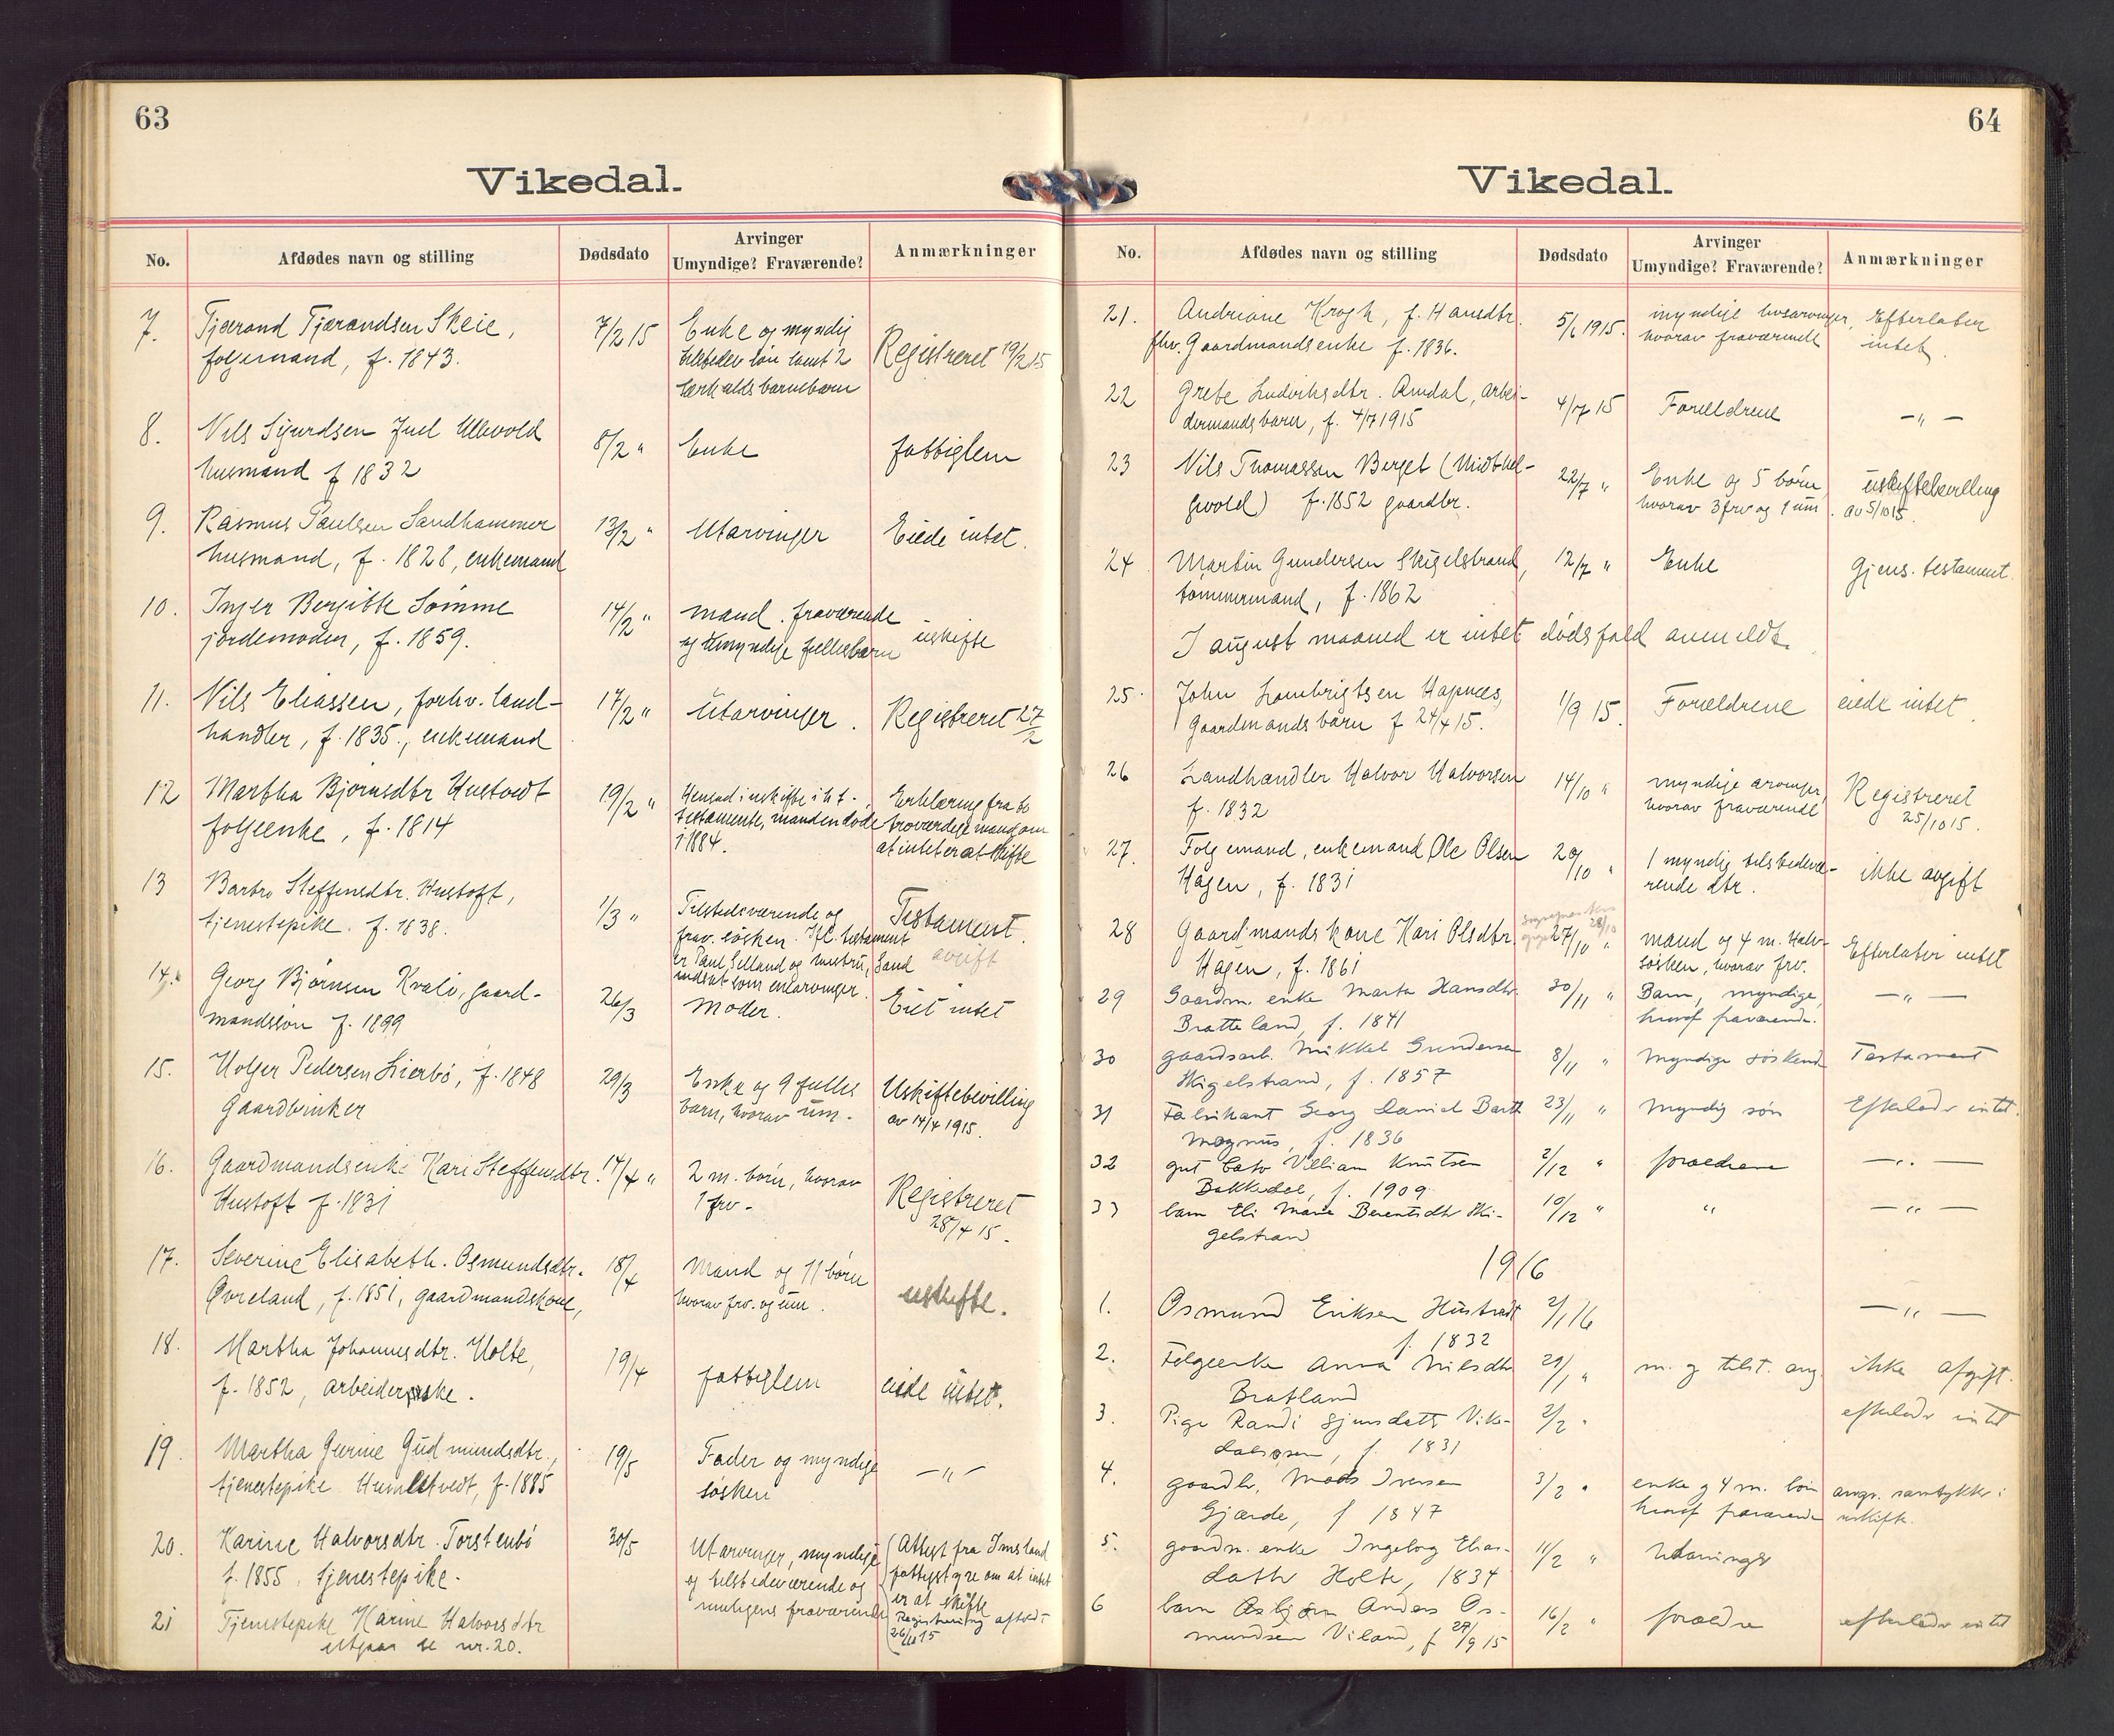 63
Vikedal.
No. Afdødes navn og stilling Dødsdato Arvinger Umyndige? Fraværende? Anmærkninger
7. Tjerand Tjerandsen Skeie, 7/2 15 Enke og myndig
folgemand, f. 1843. tilstedev. søn samt 2 Registreret 19/2 15
særkulds barnebarn
8. Nils Sjurdsen Juel Ulvevold 8/2 " Enke fattiglem
husmand f 1832
9. Rasmus Paulsen Sandhammer 13/2 " Utarvinger Eiede intet.
husmand, f. 1828, enkemand
10. Inger Bergitte Sømme 14/2 " mand. fraværende
jordemoder, f. 1859. og umyndige fællesbarn uskifte
11. Nils Eliassen, forhv. land- 17/2 " Utarvinger. Registreret 27/2
handler, f. 1835., enkemand
12 Martha Bjørnsdtr Hustvedt 19/2 " Hensad i uskifte i h.t. Erklæring fra to
folgeenke, f. 1814 testamente, manden døde troværdige mænd om
i 1884. at intet er at skifte
13 Barbro Steffensdtr. Hustoft, 1/3 " Tilstedeværende og Testament.
tjenestepike. f. 1838. frav. søsken. Ifl. testament avgift
er Paul Selland og hustru, Sand
indsat som enearvinger.
14. Georg Bjørnsen Kvalø, gaard- 26/3 Moder. Eiet intet
mandssøn f. 1899
15. Holger Pedersen Lierbø, f. 1848 29/3 Enke og 9 fælles Uskiftebevilling
Gaardbruker barn, hvorav um. av 14/4 1915.
16. Gaardmandsenke Kari Steffensdtr. 14/4 " 2 m. børn, hvorav Registreret
Hustoft f. 1831 1 frv. 28/4 15.
17. Severine Elisabeth. Osmundsdtr. 18/4 Mand og 11 børn uskifte.
Øvreland, f. 1851, gaardmandskone, hvorav frv. og um.
18. Martha Johannesdtr. Holte, 19/4 fattiglem eiede intet.
f. 1852, arbeiderske.
19. Martha Gurine Gudmundsdtr., 19/5 Fader og myndige — " —
tjenestepike Humlstvedt, f. 1885 søsken
20. Karine Halvorsdtr. Torstenbø 30/5 Utarvinger, myndige (Attest fra Imsland
f. 1855. tjenestepike. og tilstedeværende og fattigstyre om at intet
muligens fraværende er at skifte
21 Tjenestepike Karine Halvorsdtr Registrering afholdt
utgaar se nr. 20. 26/10 15
64
Vikedal.
No. Afdødes navn og stilling Dødsdato Arvinger Umyndige? Fraværende? Anmærkninger
21. Andriane Krogh, f. Hansdtr. 5/6 1915. myndige livsarvinger, Efterlater
fhv. Gaardmandsenke f. 1836. hvorav fraværende intet.
22 Grete Ludvihsdtr. Amdal, arbei- 4/7 15 Forældrene — " —
dermandsbarn, f. 4/7 1915
23 Nils Thomassen Berget (Midthel- 22/7 " Enke og 5 børn uskiftebevilling
gevold) f. 1852 gaardbr. hvorav 3 frv og 1 um. av 5/10 15.
24 Martin Gundersen Skigelstrand, 12/7 " Enke Gjens. testament.
tømmermand, f. 1862
I august maaned er intet dødsfald anmeldt.
25. John Lambrigtsen Hapnes, 1/9 15. Forældrene eiede intet.
Gaardmandsbarn f 24/4 15.
26 Landhandler Halvor Halvorsen 14/10 " myndige arvinger, Registreret
f. 1832 hvorav fraværende 25/10 15.
27. Folgemand, enkemand Ole Olsen 20/10 " 1 myndig tilstedevæ- ikke avgift
Hagen, f. 1831 rende dtr.
28 Gaardmandskone Kari Olsdtr. 27/10 " mand og 4 m. halv- Efterlater intet
Hagen, f. 1861 søsken, hvorav frv.
29 Gaardm. enke Marta Hansdtr. 30/11 " Barn, myndige, — " —
Bratteland, f. 1841 hvoraf fraværende.
30 gaardsarb. Mikkel Gundersen 8/11 " Myndige søskend Testament
Skigelstrand, f. 1857
31 Fabrikant Georg Daniel Barth 23/11 " Myndig søn Efterlader intet.
Magnus, f. 1836
32 gut Cato Villiam Knutsen 2/12 " forældrene — " —
Bakkedal, f. 1909
33 barn Eli Marie Berentsdtr Ski- 10/12 " " — " —
gelstrand
1916
1. Osmund Eriksen Hustvedt 2/1 16 — " —
f. 1832
2. Følgeenke Anna Nilsdtr 29/1 " m. og tilst. arv. ikke afgift.
Bratland
3. Pige Randi Sjursdatte Vike- 2/2 " efterlader intet
dalsøsen, f. 1831
4. gaardbr. Mads Iversen 3/2 " enke og 4 m. børn arvgr. samtykker i
Gjærde, f 1847 hvoraf fraværende uskifte.
5. gaardm. enke Ingeborg Elias- 11/2 " Udarvinger
datter Holte, 1834
6 barn Asbjørn Anders Os- 16/2 " forældre efterlader intet
mundsen Viland, f 27/9 15